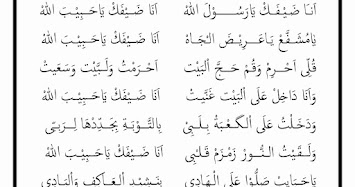 أَنَا ضَيْفُكْ يَارَسُولَ اللهْ أَنَا ضَيْفَكْ يَاحَبِيْبَ اللهْ
يَامُشَفَّعْ يَاعَرِيْضَ الْجَاهْ أَنَا ضَيْفَكْ يَاحَبِيْبَ اللهْ
قُلِّى اَحْرِمْ وَقُمْ حَجِّ اْلبَيْتْ اَحْرَمْتُ وَلَبَّيْتْ وَسَعَيْتْ
وَأَنَا دَاخِلْ عَلَى اْلبَيْتْ غَنَّيْتْ أَنَا ضَيْفَكْ يَاحَبِيْبَ اللهْ
وَدَخَلْتُ عَلَى اْلكَعْبَةْ بِلَبِّيْ بِالتَّوْبَةْ بِجَدِّدْهَا لِرَبِّى
وَلَقَيْتُ النُّورْ زَمْزَمْ قَلْبِى أَنَا ضَيْفَكْ يَاحَبِيْبَ اللهْ
يَاحَبَايِبْ صَلُّوْا عَلَى الْهَادِى بِنَشِيْدِ اْلعَاكِفْ وَاْلبَادِى